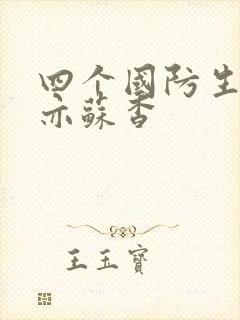 四个國防生
亦蘇杳
王玉寶